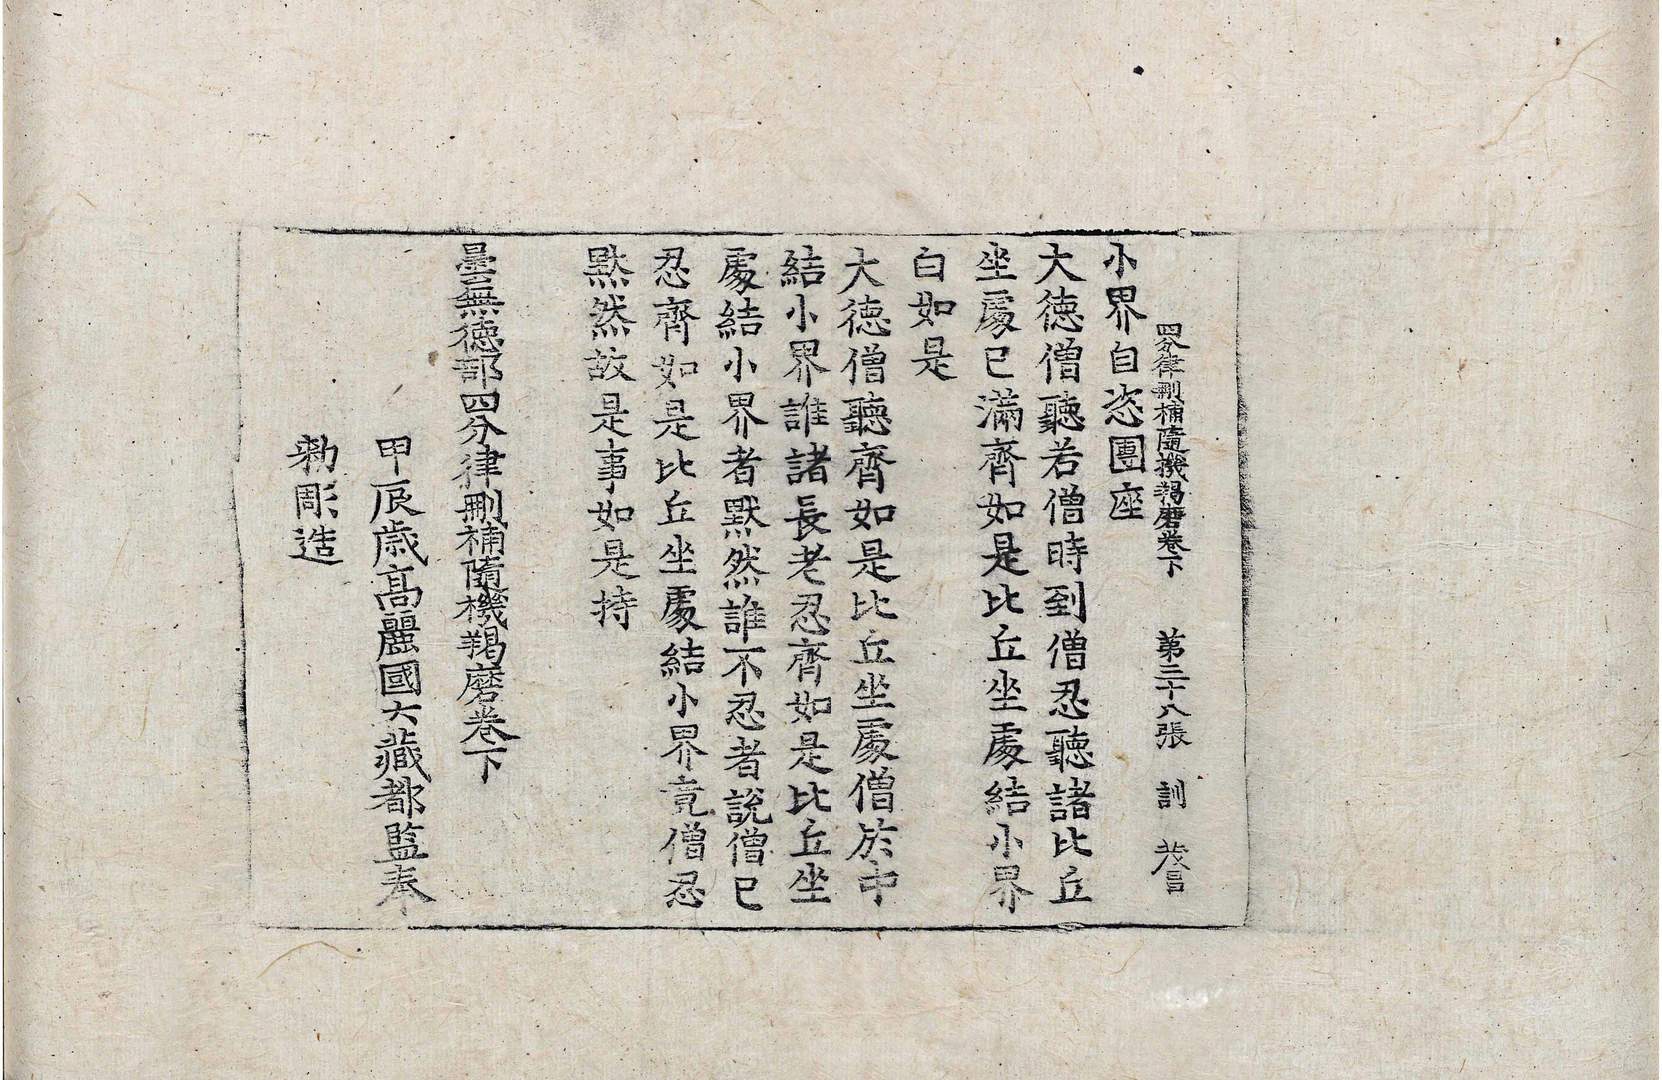 四分律刪補隨機羯磨卷下 第三十八張 訓 茂昌
小界自恣團座
大德僧聽若僧時到僧忍聽諸比丘
坐處已滿齊如是比丘坐處結小界
白如是
大德僧聽齊如是比丘坐處僧於中
結小界誰諸長老忍齊如是比丘坐
處結小界者默然誰不忍者說僧已
忍齊如是比丘坐處結小界竟僧忍
默然故是事如是持
曇無德部四分律刪補隨機羯磨卷下
甲辰歲高麗國大藏都監奉
勅彫造